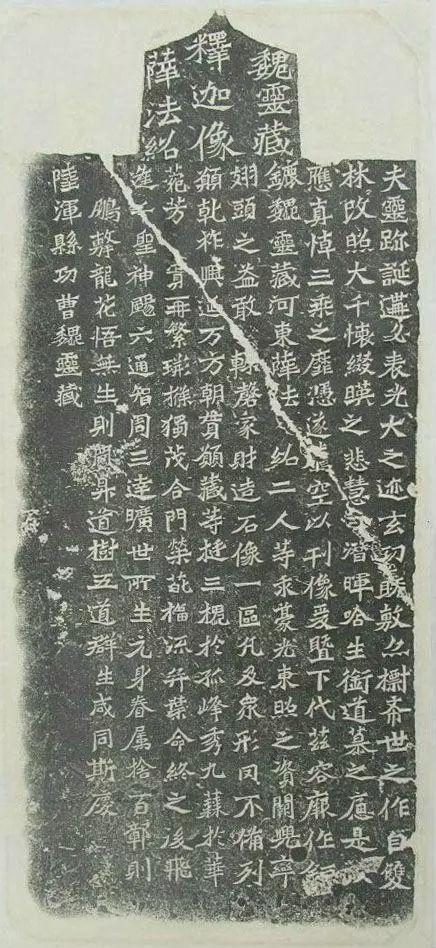 魏靈藏
釋迦像
薛法紹
夫靈跡誕遘必表光大之迹玄功既敷亦摽希世之作自雙
林改照大千懷綴暎之悲慧潛暉哈生銜道慕之應是
應真悼三乘之靡憑遂空以刊像爰暨下代茲容厥作鉅
鏕魏靈藏河東薛法紹二人等求豪光東照之資闕兜率
翅頭之益敢輒罄家財造石像一區凡及眾形罔不備列
願乾祚興延万方朝貫願藏等挺三槐於孤峰秀九蕀於華
菀芳實再繁荊條獨茂合門榮葩福流奕葉命終之後飛
逢千聖神颺六通智周三達曠世所生元身眷屬捨百鄣則
鵬擊龍花悟無生則鳳昇道樹五道群生咸同斯慶
陸渾縣功曹魏靈藏